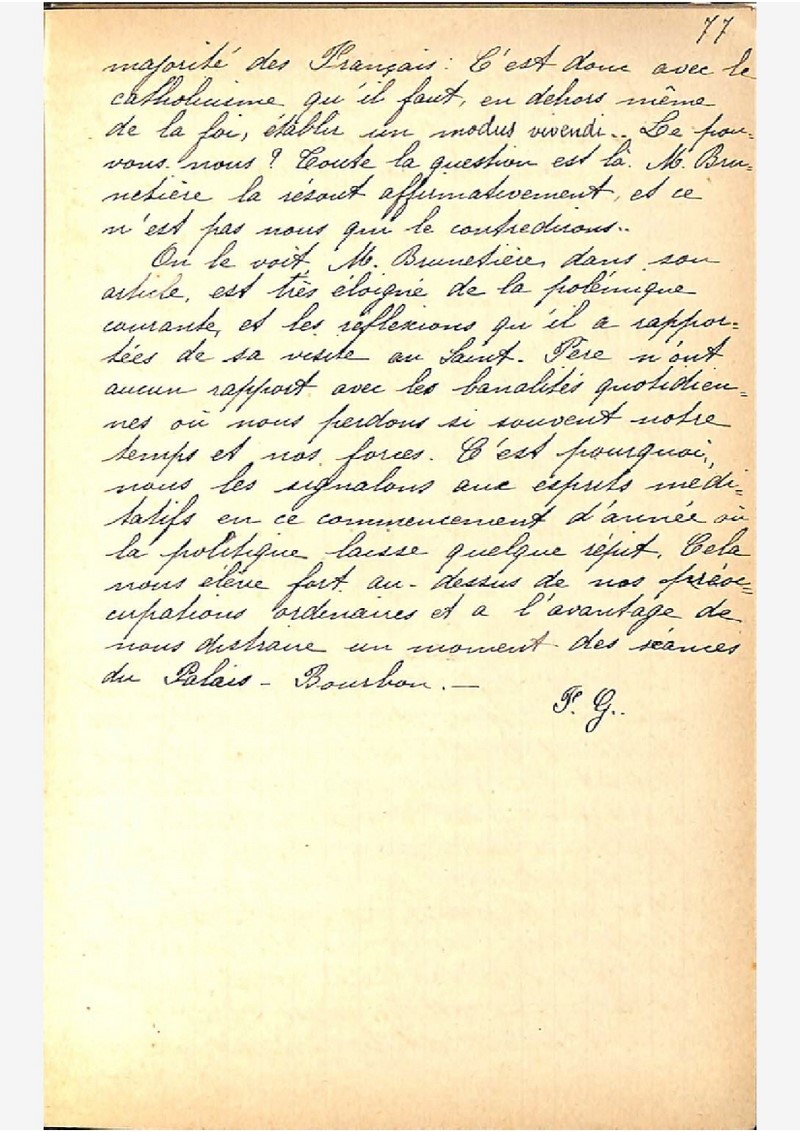 77
majorité des Français : C'est donc avec le
catholicisme qu'il faut, en dehors même
de la foi, établir un modus vivendi.. Le pou=
vons nous ? Toute la question est là. M. Bru=
netière la résout affirmativement, et ce
n'est pas nous qui le contredirons..
On le voit, M. Brunetière, dans son
article, est très éloigné de la polémique
courante, et les réflexions qu'il a rappor=
tées de sa visite au Saint-Père n'ont
aucun rapport avec les banalités quotidien=
nes où nous perdons si souvent notre
temps et nos forces. C'est pourquoi,
nous les signalons aux esprits médi=
tatifs en ce commencement d'année où
la politique laisse quelque répit. Cela
nous élève fort au-dessus de nos préoc=
cupations ordinaires et a l'avantage de
nous distraire un moment des séances
du Palais-Bourbon. —
F. G..